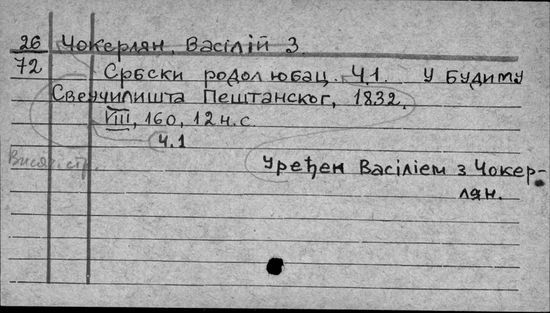 26 Чокерлян, Васілій З.
72 Србски родолюбац. Ч.1. У Будиму
Свеучилишта Пештанског, 1832.
VIII, 160, 12 н.с.
Ч.1
Уређен Васіліем з Чокер-
лян.